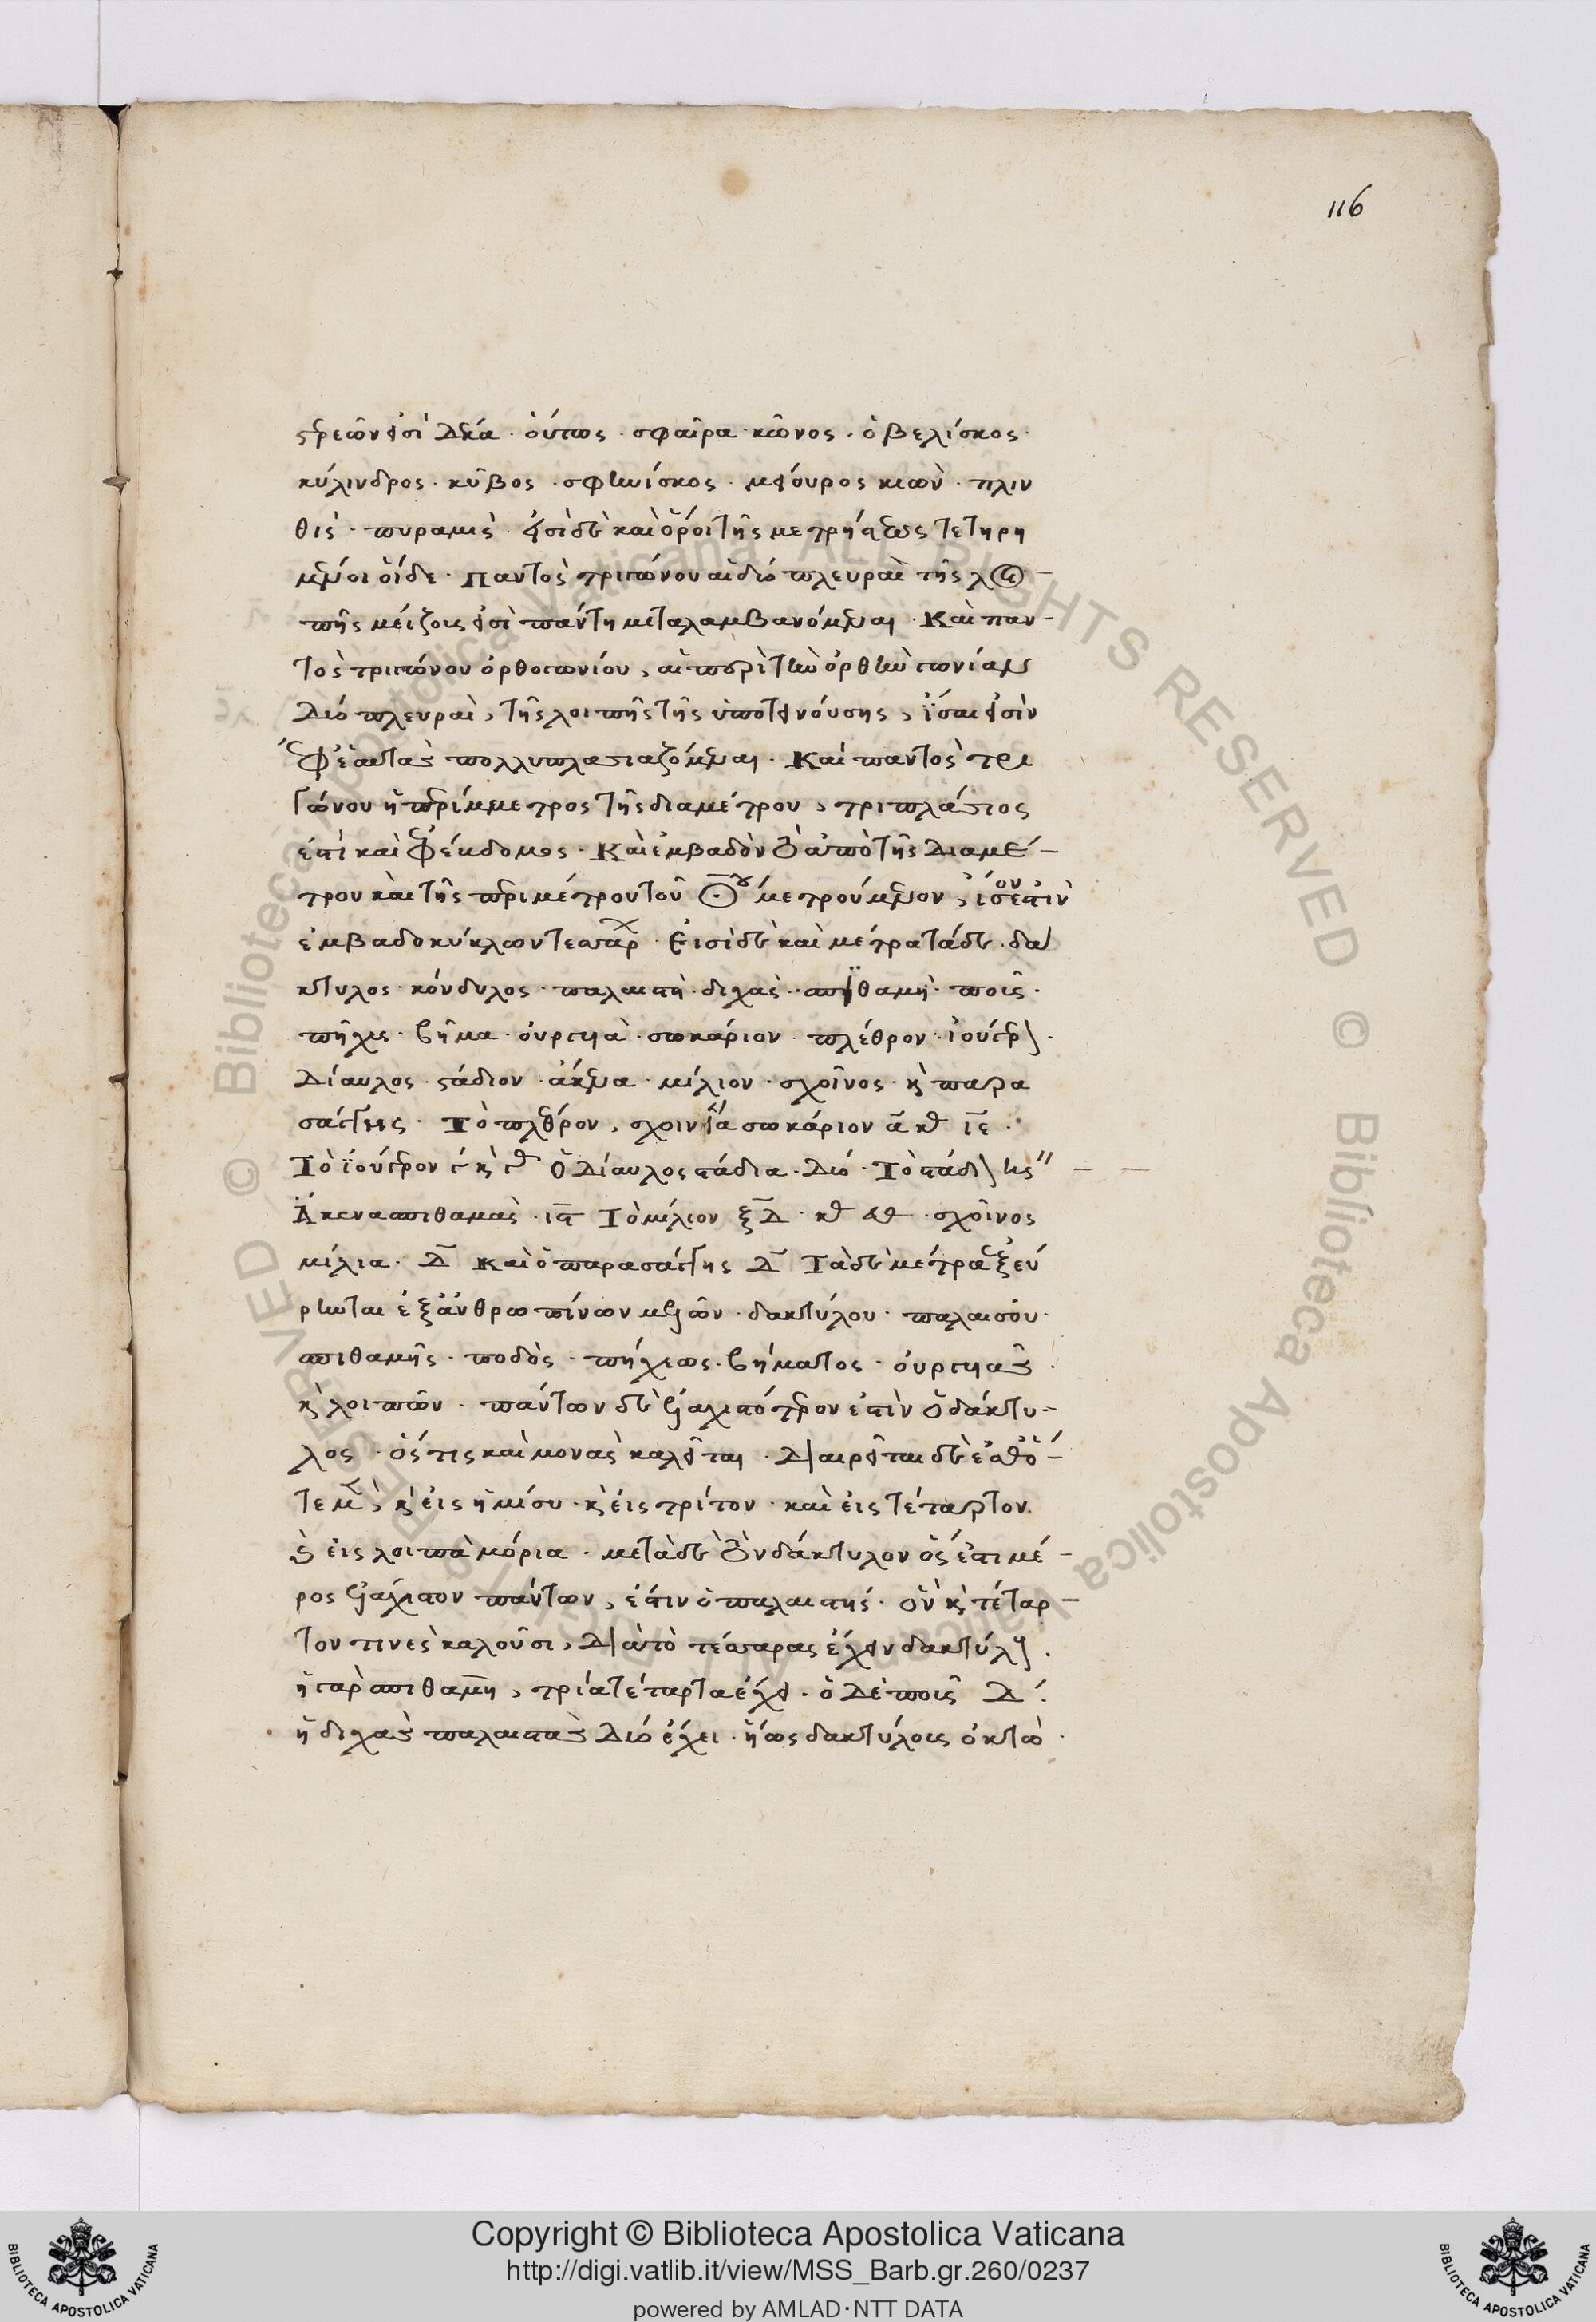 116
στερεῶν εἰσὶ δέκα · οὕτως · σφαῖρα · κῶνος · ὀβελίσκος ·
κύλινδρος · κῦβος · σφηνίσκος · μείουρος κιών · πλιν
θίς · πυραμίς · εἰσὶ δὲ καὶ ὅροι τῆς μετρήσεως τετηρη
μένοι οἵδε · Παντὸς τριγώνου αἱ δύο πλευραὶ τῆς λοι-
πῆς μείζους εἰσὶ πάντη μεταλαμβανόμεναι · Καὶ παν-
τὸς τριγώνου ὀρθογωνίου, αἱ περὶ τὴν ὀρθὴν γωνίαν
δύο πλευραὶ, τῆς λοιπῆς τῆς ὑποτεινούσης, ἴσαι εἰσὶν
ἐφ' ἑαυτὰς πολλυπλασιαζόμεναι · Καὶ παντὸς
ἡ περίμμετρος τῆς διαμέτρου, τριπλάσιος
ἐστὶ καὶ ἐφέβδομος · Καὶ ἐμβαδὸν τὸ ἀπὸ τῆς διαμέ-
τρου καὶ τῆς περιμέτρου τοῦ μετρούμενον, ἴσον ἐστὶν
ἐμβαδο κύκλων τεσσάρ · Εἰσὶ δὲ καὶ μέτρα τάδε · δα
κτυλος · κόνδυλος · παλαιστὴ · διχὰς · σπιθαμὴ · ποῦς ·
πῆχυς · βῆμα · οὐργυιὰ · σωκάριον · πλέθρον · ἰούγερον ·
Δίαυλος · στάδιον · ἄκενα · μίλιον · σχοῖνος · καὶ παρα
σάγγης · Τὸ πλέθρον, σωκάριον
Τὸ ἰούγερον Ὁ Δίαυλος στάδια · δύο · Τὸ στάδιον
Ἄκενα σπιθαμὰς · Τὸ μίλιον · σχοῖνος
μίλια · Δ Καὶ ὁ παρασάγγης Δ Τὰ δὲ μέτρα ἐξεύ
ρηνται ἐξ ἀνθρωπίνων μελῶν · δακτύλου · παλαιστοῦ ·
σπιθαμῆς · ποδὸς · πήχεως · βήματος · οὐργυιᾶς ·
καὶ λοιπῶν · πάντων δὲ ἐλαχιστότερον ἐστὶν ὁ δάκτυ-
λος · ὅς τις καὶ μονὰς καλεῖται · Διαιρεῖται δὲ ἐσθ' ὅ-
τε μὲν, καὶ εἰς ἥμισυ · καὶ εἰς τρίτον · καὶ εἰς τέταρτον
καὶ εἰς λοιπὰ μόρια · μετὰ δὲ τὸν δάκτυλον ὅς ἐστι μέ-
ρος ἐλάχιστον πάντων, ἐστιν ὁ παλαιστής · ὃν καὶ τέταρ-
τον τινὲς καλοῦσι, διὰ τὸ τέσσαρας ἔχειν δακτύλους ·
ἡ γὰρ σπιθαμὴ, τρία τέταρτα ἔχει · ὁ δὲ ποῦς Δ ·
ἡ διχὰς παλαιστὰς δύο ἔχει · ἤως δακτύλους ὀκτὼ ·
Copyright © Biblioteca Apostolica Vaticana
http://digi.vatlib.it/view/MSS_Barb.gr.260/0237
powered by AMLAD·NTT DATA